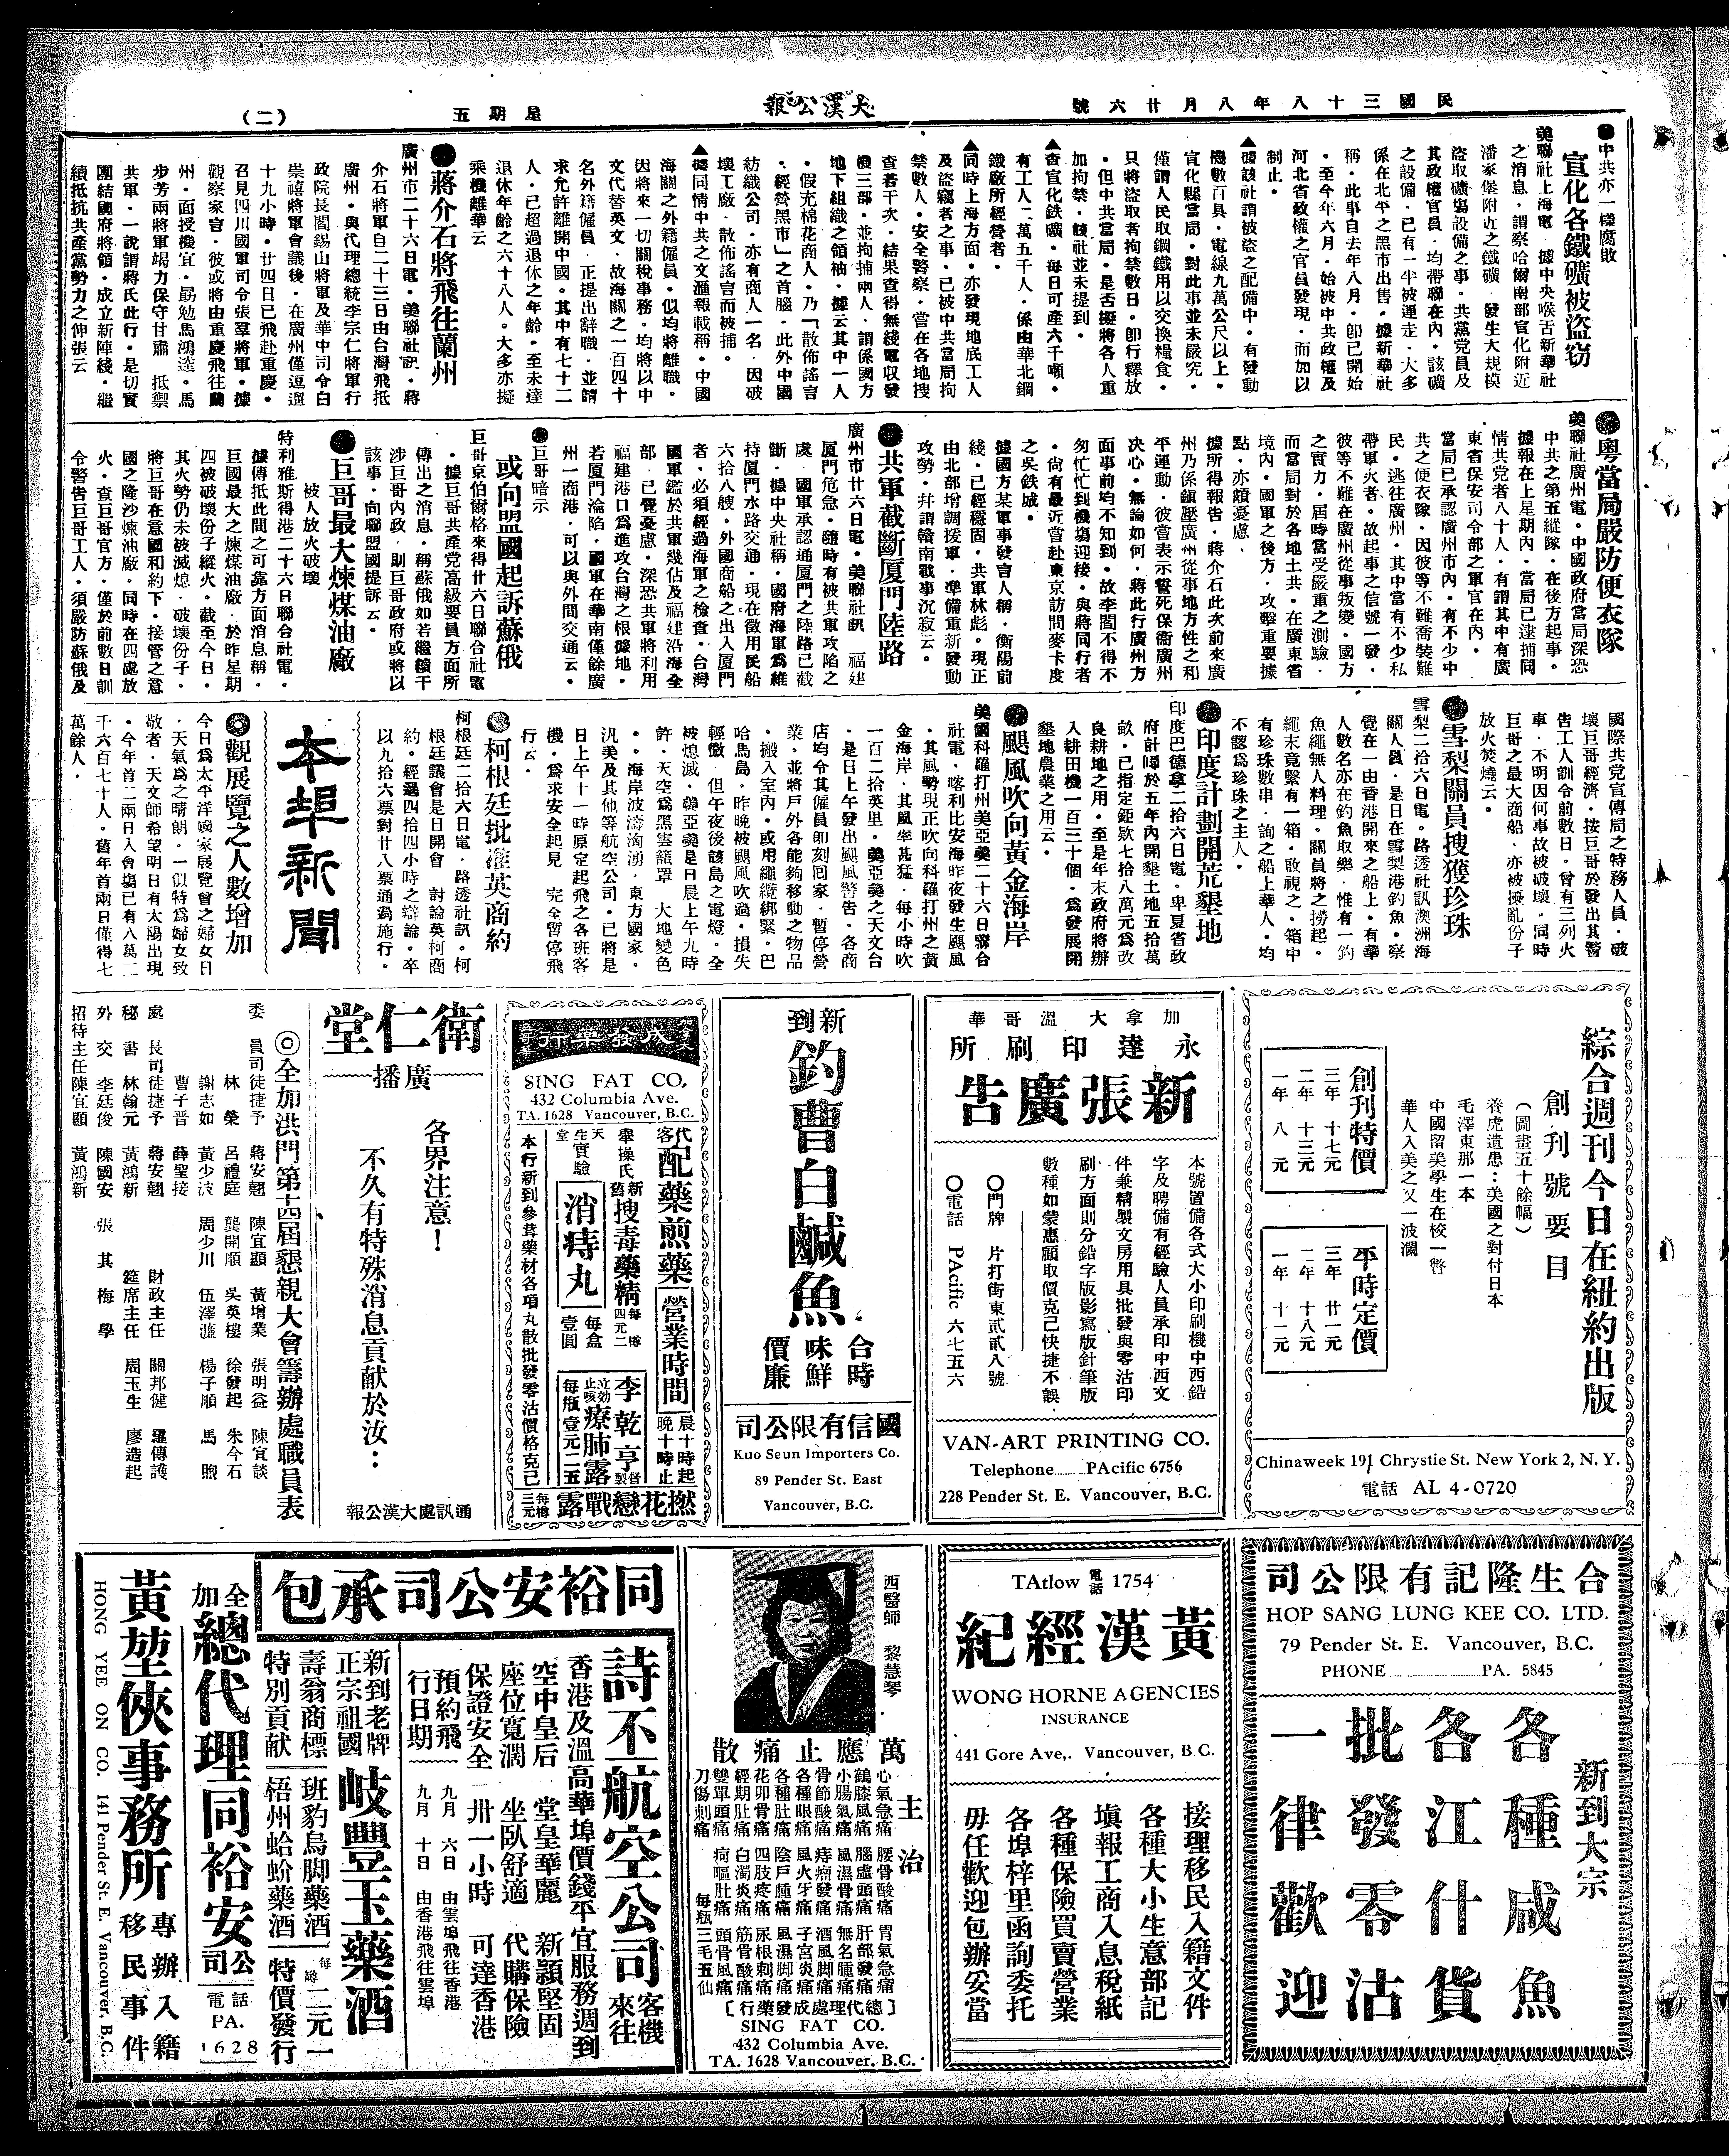 民國三十八年八月廿六號
大漢公報
星期五
(二)
中共亦一樣腐敗
宣化各鐵礦被盜窃
美聯社上海電．據中央喉舌新華社
之消息．謂察哈爾南部宣化附近
潘家堡附近之鐵礦．發生大規模
盜取礦塲設備之事．共黨党員及
其政權官員．均帶聯在內．該礦
之設備．已有一半被運走．大多
係在北平之黑市出售．據新華社
稱．此事自去年八月．卽已開始
．至今年六月．始被中共政權及
河北省政權之官員發現．而加以
制止．
▲據該社謂被盜之配備中．有發動
機數百具．電線九萬公尺以上．
宣化縣當局．對此事並未嚴究．
僅謂人民取鋼鐵用以交換糧食．
只將盜取者拘禁數日．卽行釋放
．但中共當局．是否擬將各人重
加拘禁．該社並未提到．
▲查宣化鉄礦．每日可產六千噸．
有工人一萬五千人．係由華北鋼
鐵廠所經營者．
▲同時上海方面．亦發現地底工人
及盜竊者之事．已被中共當局拘
禁數人．安全警察．嘗在各地搜
查若干次．結果查得無綫電收發
機三部．並拘捕兩人．謂係國方
地下組織之領袖．據云其中一人
．假充棉花商人．乃「散佈謠言
．經營黑市」之首腦．此外中國
紡織公司．亦有商人一名．因破
壞工廠．散佈謠言而被捕．
▲據同情中共之文滙報載稱．中國
海關之外籍僱員．似均將離職．
因將來一切關稅事務．均將以中
文代替英文．故海關之一百四十
名外籍僱員．正提出辭職．並請
求允許離開中國。其中有七十二
人．已超過退休之年齡．至未達
退休年齡之六十八人。大多亦擬
乘機離華云
蔣介石將飛往蘭州
廣州市二十六日電．美聯社訊．蔣
介石將軍自二十三日由台灣飛抵
廣州．與代理總統李宗仁將軍行
政院長閻錫山將軍及華中司令白
崇禧將軍會議後．在廣州僅逗遛
十九小時．廿四日已飛赴重慶．
召見四川國軍司令張羣將軍．據
觀察家言．彼或將由重慶飛往蘭
州．面授機宜．勗勉馬鴻逵．馬
步芳兩將軍竭力保守甘肅．抵禦
共軍．一說謂蔣氏此行．是切實
團結國府將領．成立新陣綫．繼
續抵抗共產黨勢力之伸張云
粵當局嚴防便衣隊
美聯社廣州電．中國政府當局深恐
中共之第五縱隊．在後方起事．
據報在上星期內．當局已逮捕同
情共党者八十人．有謂其中有廣
東省保安司令部之軍官在內．
當局已承認廣州市內．有不少中
共之便衣隊．因彼等不難喬裝難
民．逃往廣州．其中當有不少私
帶軍火者．故起事之信號一發．
彼等不難在廣州從事叛變．國方
之實力．屆時當受嚴重之測驗．
而當局對於各地土共．在廣東省
境內．國軍之後方．攻擊重要據
點．亦頗憂慮．
據所得報告．蔣介石此次前來廣
州乃係鎭壓廣州從事地方性之和
平運動，彼嘗表示誓死保衛廣州
決心．無論如何．蔣此行廣州方
面事前均不知到．故李閻不得不
匆忙忙到機塲迎接．與蔣同行者
．尙有最近嘗赴東京訪問麥卡度
之吳鉄城．
據國方某軍事發言人稱．衡陽前
綫．已經穩固．共軍林彪。現正
由北部增調援軍．準備重新發動
攻勢．幷謂贛南戰事沉寂云。
共軍截斷厦門陸路
廣州市廿六日電．美聯社訊．福建
厦門危急．隨時有被共軍攻陷之
處．國軍承認通厦門之陸路已截
斷．據中央社稱．國府海軍爲維
持厦門水路交通．現在徵用民船
六拾八艘．外國商船之出入厦門
者．必須經過海軍之檢查．台灣
國軍鑑於共軍幾佔及福建沿海全
部．已覺憂慮．深恐共軍將利用
福建港口爲進攻台灣之根據地．
若厦門淪陷．國軍在華南僅餘廣
州一商港．可以與外間交通云．
巨哥暗示
或向盟國起訴蘇俄
巨哥京伯爾格來得廿六日聯合社電
．據巨哥共產党高級要員方面所
傳出之消息．稱蘇俄如若繼續干
涉巨哥內政．則巨哥政府或將以
該事．向聯盟國提訴云。
巨哥最大煉煤油廠
被人放火破壞
特利雅斯得港二十六日聯合社電．
據傳抵此間之可靠方面消息稱．
巨國最大之煉煤油廠．於昨星期
四被破壞份子縱火．截至今日．
其火勢仍未被滅熄．破壞份子．
將巨哥在意國和約下．接管之意
國之隆沙煉油廠．同時在四處放
火．查巨哥官方．僅於前數日訓
令警告巨哥工人．須嚴防蘇俄及
國際共党宣傳局之特務人員．破
壞巨哥經濟．按巨哥於發出其警
告工人訓令前數日．曾有三列火
車．不明因何事故被破壞．同時
巨哥之最大商船．亦被擾亂份子
放火焚燒云．
雪梨關員搜獲珍珠
雪梨二拾六日電．路透社訊澳洲海
關人員．是日在雪梨港釣魚．察
覺在一由香港開來之船上．有華
人數名亦在釣魚取樂．惟有一釣
魚繩無人料理．關員將之撈起．
繩末竟繫有一箱．啟視之．箱中
有珍珠數串．詢之船上華人．均
不認爲珍珠之主人．
印度計劃開荒墾地
印度巴德拿二拾六日電．卑夏省政
府計畫於五年內開墾土地五拾萬
畝．已指定鉅欵七拾八萬元爲改
良耕地之用．至是年末政府將辦
入耕田機一百三十個．爲發展開
墾地農業之用云．
颶風吹向黃金海岸
美國科羅打州美亞美二十六日聯合
社電．喀利比安海昨夜發生颶風
．其風勢現正吹向科羅打州之黃
金海岸．其風率甚猛．每小時吹
一百二拾英里．美亞美之天文台
．是日上午發出颶風警告．各商
店均令其僱員卽刻囘家．暫停營
業．並將戶外各能夠移動之物品
．搬入室內．或用繩纜綁緊。巴
哈馬島．昨晚被颶風吹過．損失
輕微．但午夜後該島之電燈．全
被熄滅．美亞美是日晨上午九時
許．天空爲黑雲籠罩．大地變色
．海岸波濤洶湧．東方國家．
汎美及其他等航空公司．已將是
日上午十一時原定起飛之各班客
機．爲求安全起見．完全暫停飛
行云．
柯根廷批准英商約
柯根廷二拾六日電．路透社訊。柯
根廷議會是日開會．討論英柯商
約．經過四拾四小時之辯論．卒
以九拾六票對廿八票通過施行．
本埠新聞
觀展覽之人數增加
今日爲太平洋國家展覽會之婦女日
．天氣爲之晴朗．一似特爲婦女致
敬者．天文師希望明日有太陽出現
．今年首二兩日入會塲已有八萬二
千六百七十人．舊年首兩日僅得七
萬餘人．
綜合週刊今日在紐約出版
創刊號要目
(圖畫五十餘幅)
養虎遺患：美國之對付日本
毛澤東那一本
中國留美學生在校一瞥
華人入美之又一波瀾
創刊特價
三年 十七元
二年 十三元
一年 八元
平時定價
三年 廿一元
二年 十八元
一年 十一元
Chinaweek 191 Chrystie St. New York 2, N. Y.
電話 AL 4-0720
加拿大溫哥華
永達印刷所
新張廣告
本號置備各式大小印刷機中西鉛
字及聘備有經驗人員承印中西文
件兼精製文房用具批發與零沽印
刷方面則分鉛字版影寫版針筆版
數種如蒙惠顧取價克己快捷不誤
〇門牌 片打街東貳貳八號
〇電話 PAcific 六七五六
VAN-ART PRINTING CO.
Telephone........PAcific 6756
228 Pender St. E. Vancouver, B.C.
新到
釣曹白鹹魚
合時
味鮮
價廉
國信有限公司
Kuo Seun Importers Co.
89 Pender St. East
Vancouver, B.C.
SING FAT CO.
432 Columbia Ave.
TA. 1628 Vancouver, B.C.
代客
配藥煎藥
營業時間
晨十時起
晚十時止
舉操氏
新舊
搜毒藥精
每樽四元二
李乾亨督製
天生堂實驗
消痔丸
每盒壹圓
立効止咳
療肺露
每瓶壹元二五
本行新到參茸藥材各項丸散批發零沽價格克己
撚花戀戰露
每樽三元
衛仁堂
廣播
各界注意！
不久有特殊消息貢獻於汝：
通訊處大漢公報
◎全加洪門第十四屆懇親大會籌辦處職員表
委員 司徒捷予 蔣安翹 陳宜顯 黃增業 張明益 陳宜談
林榮 呂禮庭 龔開順 吳英樓 徐發起 朱今石
謝志如 黃少波 周少川 伍澤濂 楊子順 馬煦
曹子晋 薛聖接
處長 司徒捷予 蔣安翹 財政主任 關邦健 羅傳護
秘書 林翰元 黃鴻新 筵席主任 周玉生 廖造起
外交 李廷俊 陳國安 張其梅學
招待主任 陳宜顯 黃鴻新
合生隆記有限公司
HOP SANG LUNG KEE CO. LTD.
79 Pender St. E. Vancouver, B.C.
PHONE....................PA. 5845
新到大宗
各種咸魚
各江什貨
批發零沽
一律歡迎
TAtlow 電話 1754
黃漢經紀
WONG HORNE AGENCIES
INSURANCE
441 Gore Ave,. Vancouver, B.C.
接理移民入籍文件
各種大小生意部記
填報工商入息稅紙
各種保險買賣營業
各埠梓里函詢委托
毋任歡迎包辦妥當
西醫師 黎慧琴
萬應止痛散
主治
心氣急痛 腰骨酸痛 胃氣急痛
鶴膝風痛 腦虛頭痛 肝部發痛
小腸氣痛 風濕骨痛 無名腫痛
骨節酸痛 痔瘡發痛 酒風脚痛
各種眼痛 風火牙痛 子宮炎痛
各種肚痛 陰戶腫痛 風濕脚痛
花卯骨痛 四肢疼痛 尿根刺痛
經期肚痛 白濁炎痛 筋骨酸痛
雙單頭痛 疴嘔肚痛 頭骨風痛
刀傷刺痛 每瓶三毛五仙
[總代理處成發藥行]
SING FAT CO.
432 Columbia Ave.
TA. 1628 Vancouver. B.C.
同裕安公司承包
詩不航空公司
客機來往
香港及溫高華埠價錢平宜服務週到
空中皇后 堂皇華麗 新穎堅固
座位寬濶 坐臥舒適 代購保險
保證安全 卅一小時 可達香港
預約飛行日期
九月六日 由雲埠飛往香港
九月十日 由香港飛往雲埠
新到老牌
正宗祖國
岐豐玉藥酒
壽翁商標
特別貢献
班豹烏脚藥酒
梧州蛤蚧藥酒
每罇二元一
特價發行
全加
總代理同裕安公司
電話
PA.
1628
黃堃俠事務所
專辦入籍
移民事件
HONG YEE ON CO. 141 Pender St. E. Vancouver, B.C.